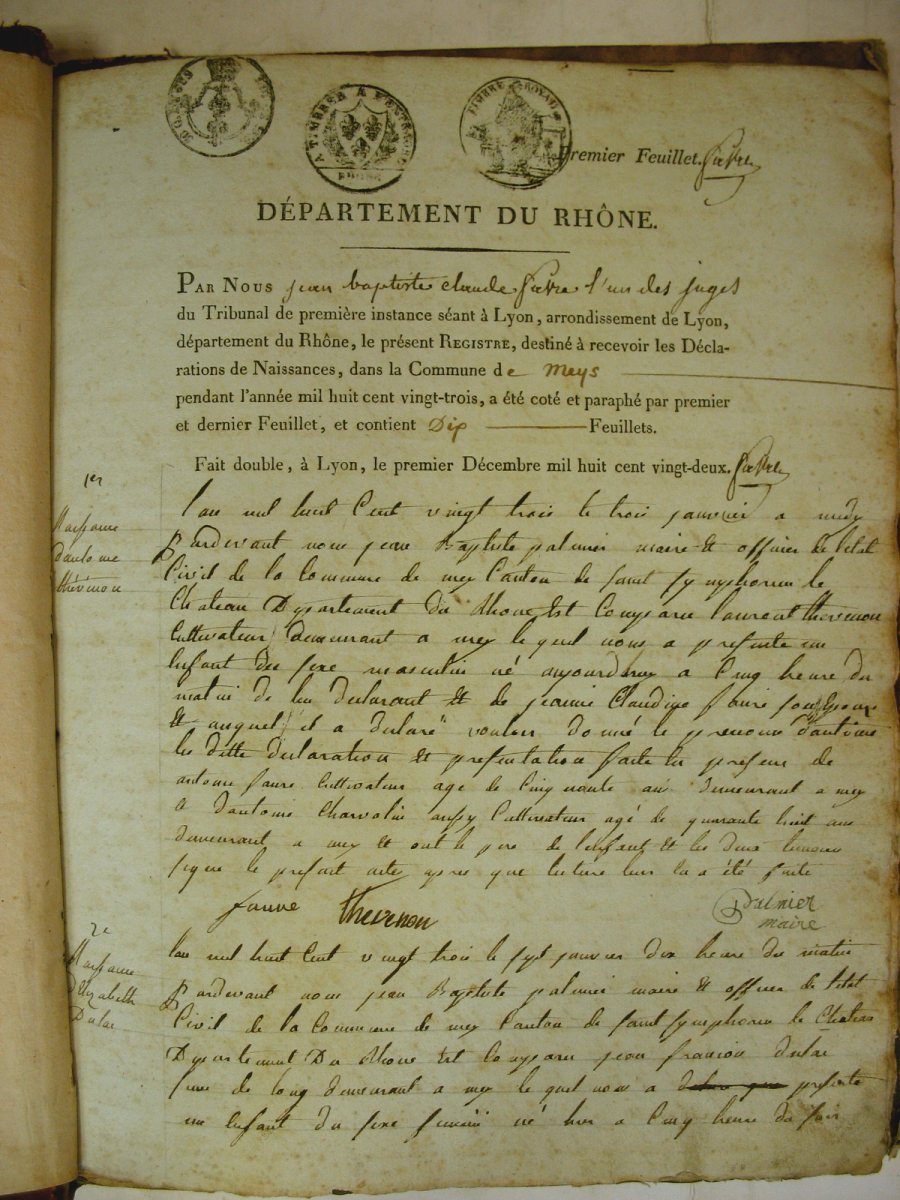 TIMBRE ROYAL
Premier Feuillet.
DÉPARTEMENT DU RHÔNE.
PAR NOUS jean baptiste claude l'un des juges
du Tribunal de première instance séant à Lyon, arrondissement de Lyon,
département du Rhône, le présent REGISTRE, destiné à recevoir les Décla-
rations de Naissances, dans la Commune de Meys
pendant l'année mil huit cent vingt-trois, a été coté et paraphé par premier
et dernier Feuillet, et contient Dix Feuillets.
Fait double, à Lyon, le premier Décembre mil huit cent vingt-deux.
1er
Naissance
Dantoine
thévenon
lan mil huit Cent vingt trois le trois janvier a midy
pardevant nous jean Baptiste palmier maire et officier de letat
Civil de la Commune de mey Canton de saint symphorien le
Chateau Departement du Rhone Est Comparu laurent thevenon
Cultivateur demeurant a mey le quel nous a presente un
Enfant du sexe masculin né aujourdhuy a Cinq heure du
matin de luy declarant et de jeanne Claudine faure son Epouse
et auquel il a declaré vouloir donné le prenom dantoine
les ditte declaration et presentation faite en presence de
antoine faure Cultivateur agé de Cinquante ans demeurant a mey
et dantoine Charvolin aussy Cultivateur agé de quarante huit ans
demeurant a mey et ont le pere de lenfant et les deux temoins
signe le present acte apres que lecture leur la a été faite
faure thevenon palmier
maire
2e
Naissance
dElizabeth
Dulac
lan mil huit Cent vingt trois le sept janvier dix heure du matin
pardevant nous jean Baptiste palmier maire et officier de letat
Civil de la Commune de mey Canton de saint symphorien le Chateau
Departement Du Rhone Est Comparu jean francois dulac
de long demeurant a mey le quel nous a presente
un Enfant du sexe feminin né hier a Cinq heure du soir